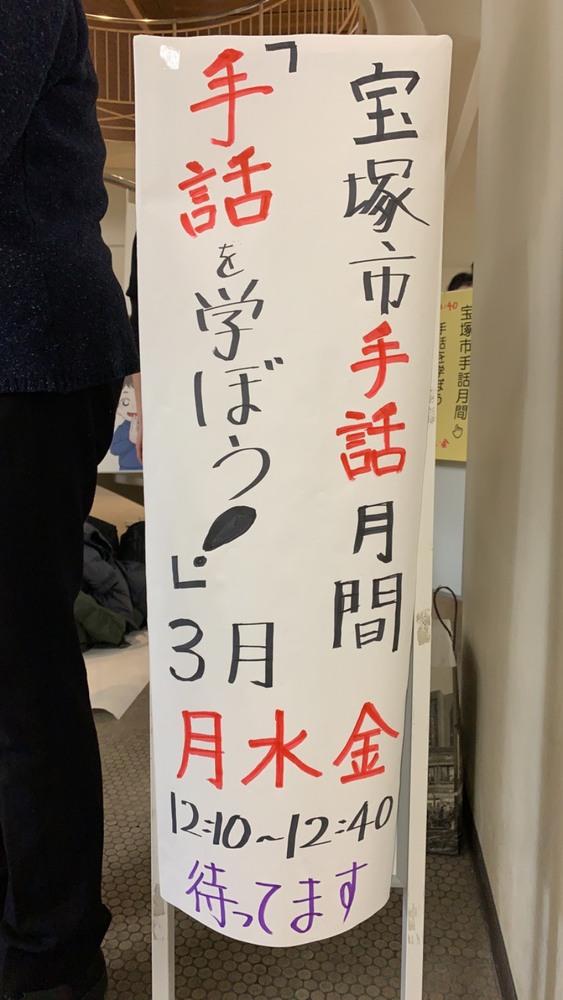 宝塚市手話月間
「手話を学ぼう!」
3月
月水金
12:10~12:40
待ってます
宝塚市手話月間
手話を学ぼう